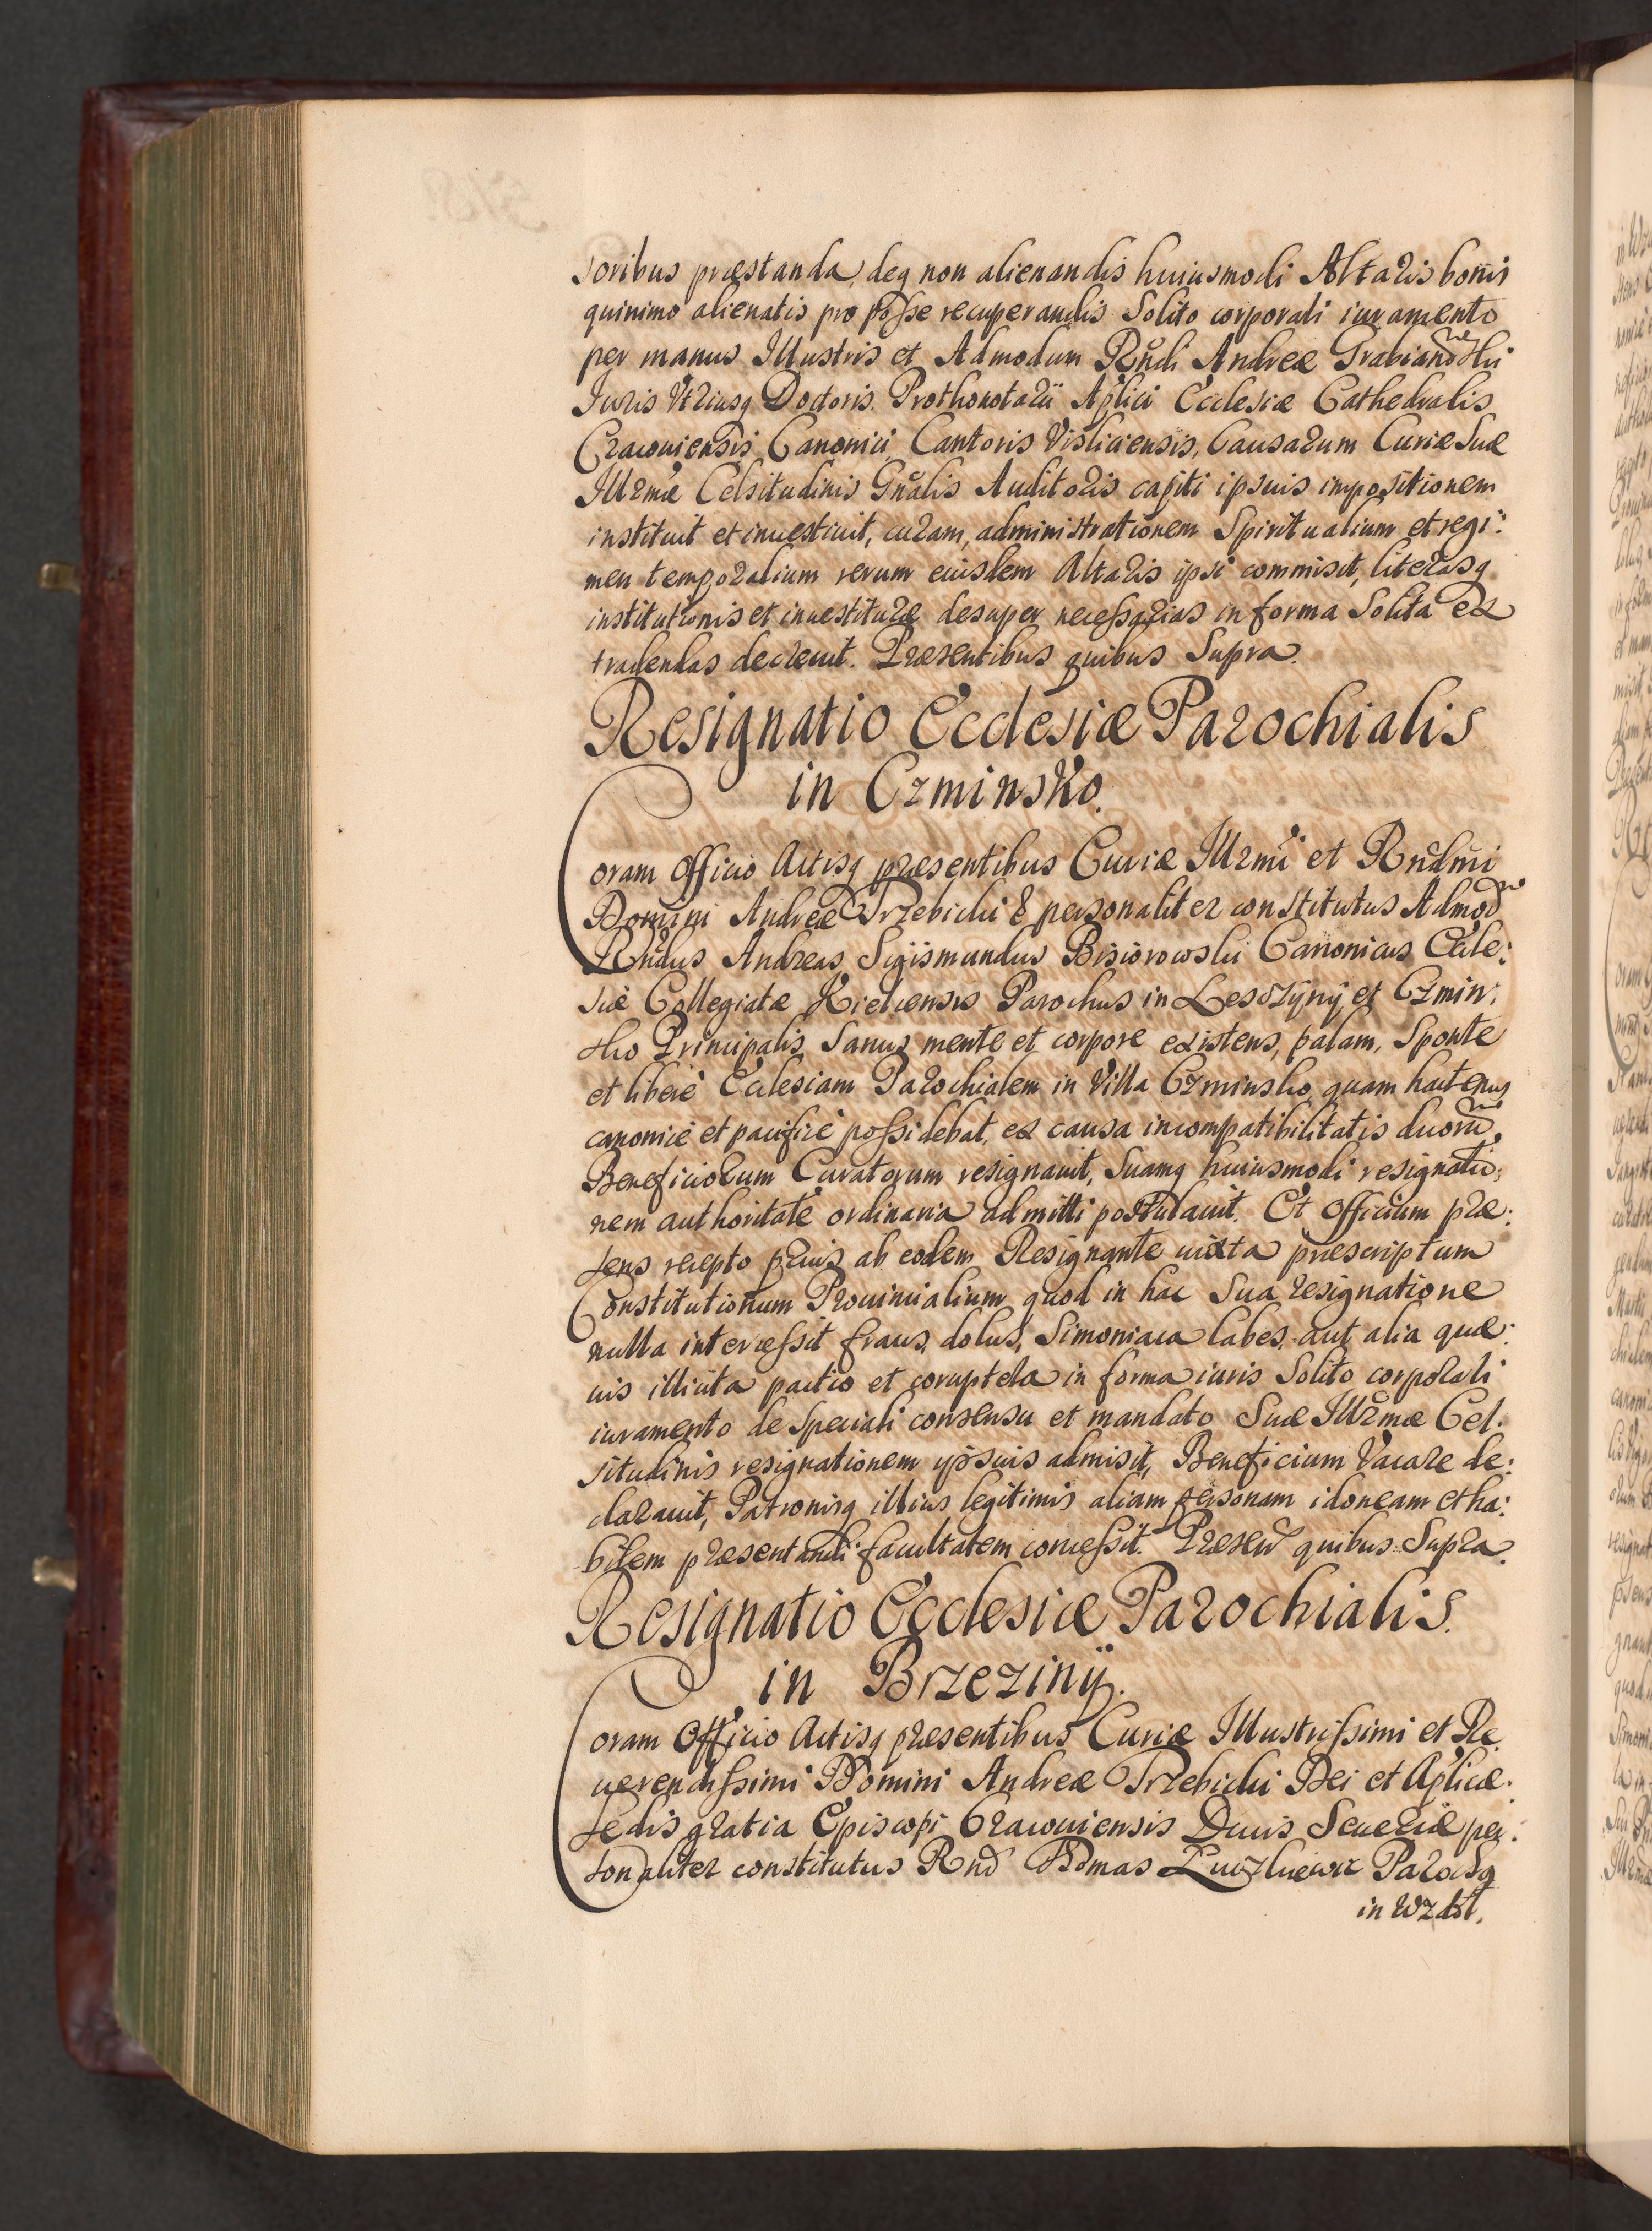 soribus præstanda, deq non alienandis huiusmodi Altaris bonis
quinimo alienatis pro posse recuperandis Solito corporali iuramento
per manus Illustris et Admodum Rndi Andreæ Grabianowski
Iuris Vtriusq Doctoris. Prothonotarij Aplici Ecclesiæ Cathedralis
Cracouiensis Canonici, Cantoris Visliciensis, Causarum Curiæ Suæ
Illrmæ Celsitudinis Gnalis Auditoris capiti ipsuis impositionem
instituit et inuestiuit, curam, administrationem Spiritualium et regi:
men temporalium rerum eiusdem Altaris ipsi commisit, literasq
institutionis et inuestituræ desuper necessarias in forma Solita ex
tradendas decreuit. Præsentibus quibus Supra.
Resignatio Ecclesiæ Parochialis
in Czminsko.
Coram Officio Actisq præsentibus Curiæ Illrmi et Rndmi
Domini Andreæ Trzebicki & personaliter constitutus Admod
Rndus Andreas Sigismundus Bisiorowski Canonicus Eccle:
siæ Collegiatæ Kielcensis Parochus in Leszczÿnÿ et Czmin:
sko Principalis Sanus mente et corpore existens, palam, Sponte
et liberè Ecclesiam Parochialem in Villa Czminsko, quam hactenus
canonicè et pacificè possidebat, ex causa incompatibilitatis duoru
Beneficiorum Curatorum resignauit, Suamq huiusmodi resignatio:
nem authoritate ordinaria admitti postulauit. Et Officium præ:
sens recepto prius ab eodem Resignante iuxta præscriptum
Constitutionum Prouincialium, quod in hac Sua resignatione
nulla intercessit fraus, dolus, Simoniaca labes, aut alia quæ:
uis illicita pactio et coruptela in forma iuris Solito corporali
iuramento de Speciali consensu et mandato Suæ Illrmæ Cel.
situdinis resignationem ipsuis admisit, Beneficium Vacare de:
clarauit, Patronisq illius legitimis aliam personam idoneam et ha:
bilem præsentandi facultatem concessit. Præsen quibus Supra.
Resignatio Ecclesiæ Parochialis.
in Brzezinÿ.
Coram Officio Actisq præsentibus Curiæ Illustrissimi et Re
uerendissimi Domini Andreæ Trzebicki Dei et Aplicæ
Sedis gratia Episcopi Cracouiensis Ducis Seueriæ per:
sonaliter constitutus Rnd Thomas Parochq
in Wzdol,